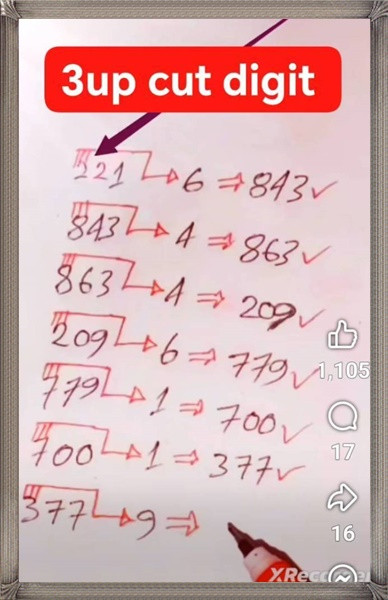 3up cut digit
221 → 6 ⇒ 843 ✓
843 → 4 ⇒ 863 ✓
863 → 4 ⇒ 209 ✓
209 → 6 ⇒ 779 ✓
1,105
779 → 1 ⇒ 700 ✓
17
700 → 1 ⇒ 377 ✓
377 → 9 ⇒
16
XRecorder